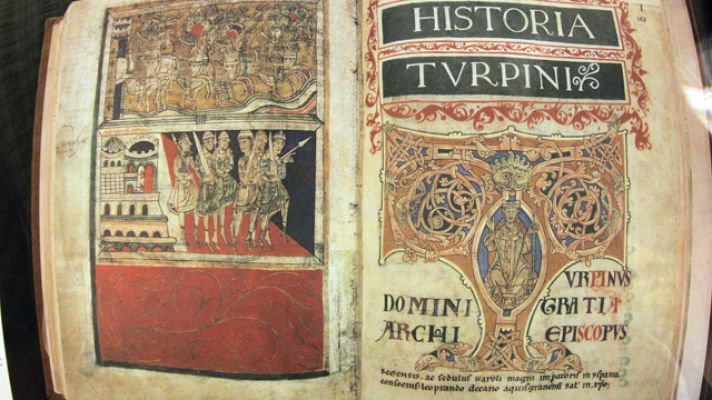 HISTORIA
TVRPINI
VRPINVS
DOMINI GRATIA
ARCHI EPISCOPVS
REMENSIS. ac sedulus karoli magni imperatoris in hispania
consocius leoprando decano aquisgranensi sal in xpo;